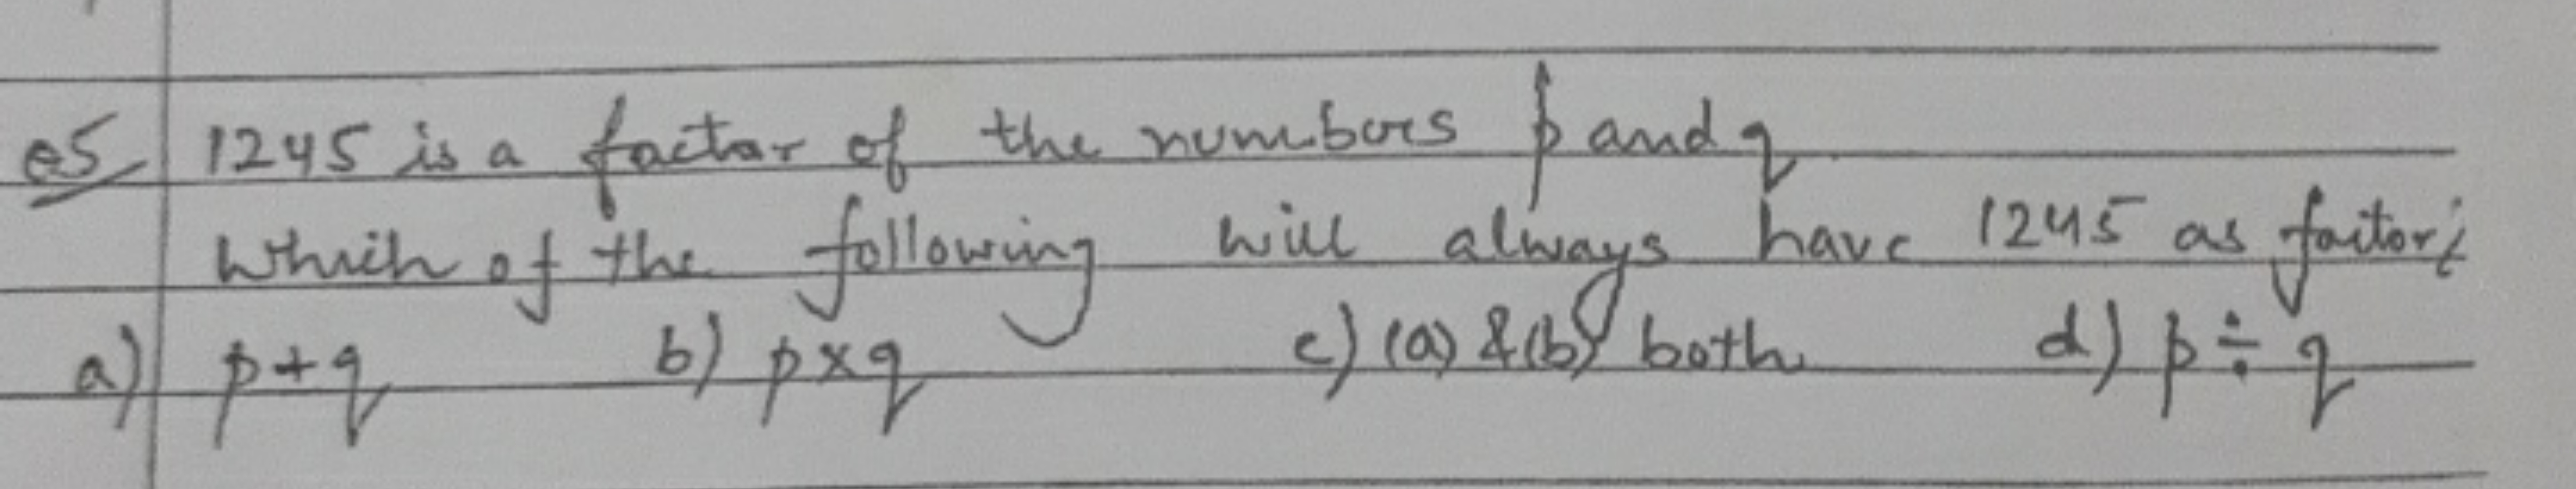 Q5 1245 is a factor of the numbers p and q
Which of the following will always have 1245 as factor?
a) p+q b) p×q c) (a) & (b) both d) p÷q